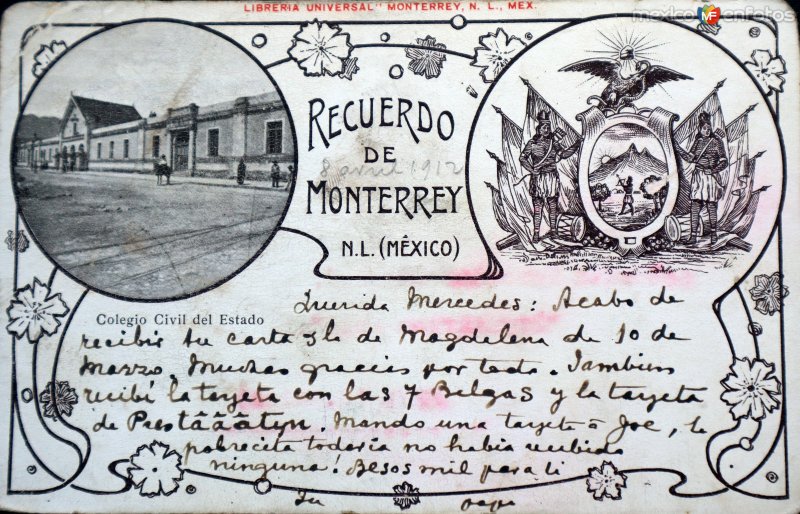 LIBRERIA UNIVERSAL" MONTERREY, N. L., MEX.
mexicoenfotos
RECUERDO
DE
8 avril 1912
MONTERREY
N.L. (MÉXICO)
Colegio Civil del Estado
Querida Mercedes: Acabo de
recibir tu carta y la de Magdalena de 10 de
Marzo. Muchas gracias por todo. Tambien
recibí la tarjeta con las 7 Belgas y la tarjeta
de Mando una tarjeta a Joe, la
pobrecita todavia no habia recibido
ninguna. Besos mil para ti
Tu papa